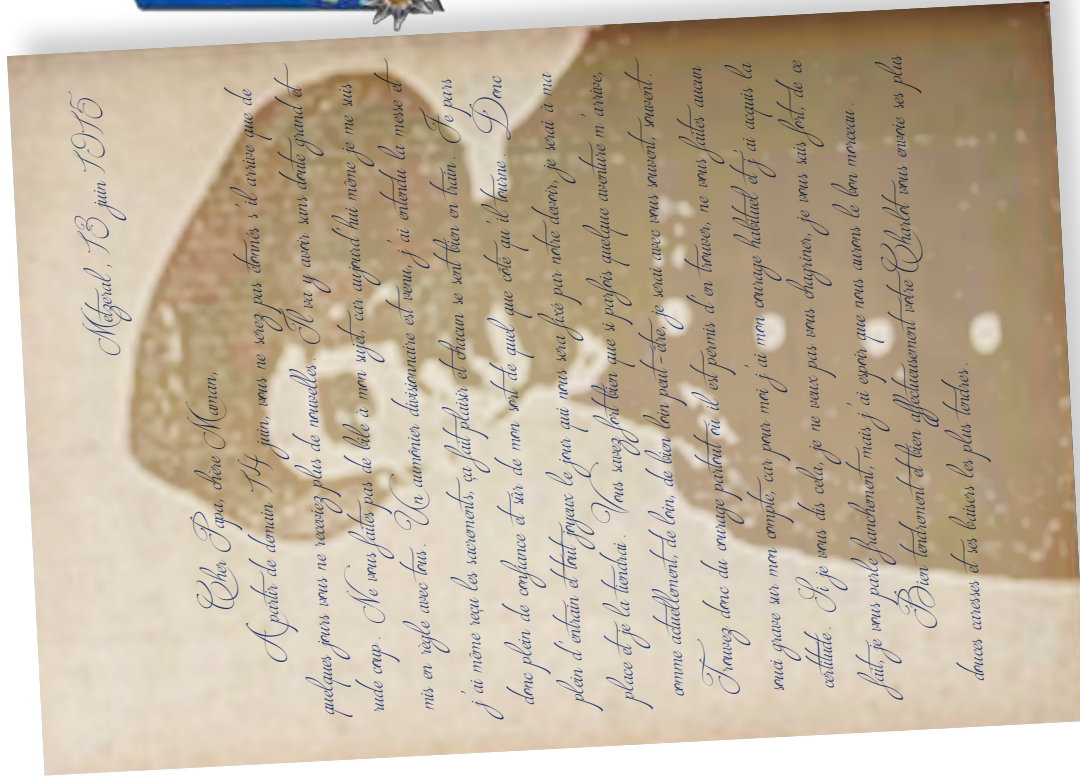 Metzeral, 13 juin 1915
Cher Papa, chère Maman,
A partir de demain 14 juin, vous ne serez pas étonnés s'il arrive que de
quelques jours vous ne receviez plus de nouvelles. Il va y avoir sans doute grand et
rude coup. Ne vous faites pas de bile à mon sujet, car aujourd'hui même je me suis
mis en règle avec tous. Un aumônier divisionnaire est venu, j'ai entendu la messe et
j'ai même reçu les sacrements, ça fait plaisir et chacun se sent bien en train. Je pars
donc plein de confiance et sûr de mon sort de quel que côté qu'il tourne. Donc
plein d'entrain et tout joyeux le jour qui nous sera fixé par notre devoir, je serai à ma
place et je la tiendrai. Vous savez fort bien que si parfois quelque aventure m'arrive,
comme actuellement, de loin, de bien loin peut-être, je serai avec vous souvent, souvent.
Trouvez donc du courage partout où il est permis d'en trouver, ne vous faites aucun
souci grave sur mon compte, car pour moi j'ai mon courage habituel et j'ai acquis la
certitude. Si je vous dis cela, je ne veux pas vous chagriner, je vous sais fort, de ce
fait, je vous parle franchement, mais j'ai espoir que nous aurons le bon morceau.
Bien tendrement et bien affectueusement votre Charlot vous envoie ses plus
douces caresses et ses baisers les plus tendres.